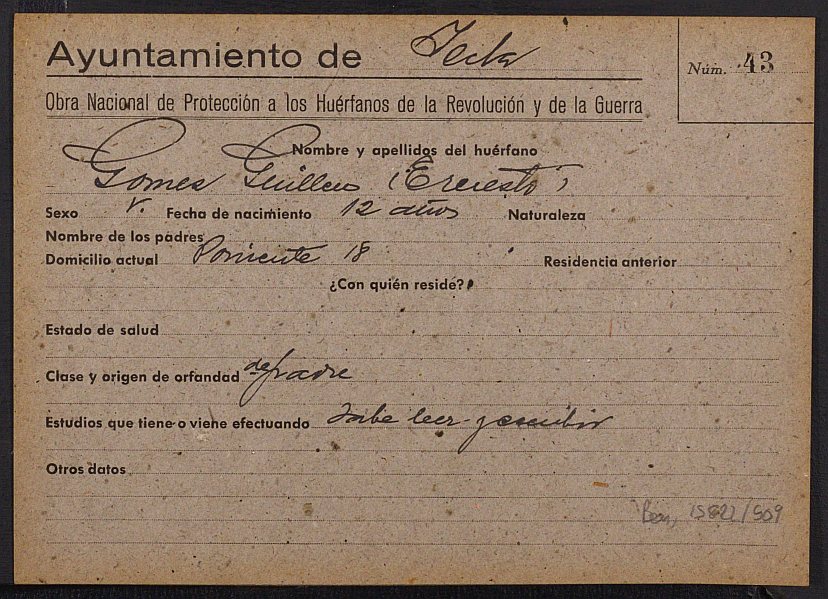 Ayuntamiento de Yecla
Núm. 43
Obra Nacional de Protección a los Huérfanos de la Revolución y de la Guerra
Nombre y apellidos del huérfano
Gomes Guillen (Ernesto)
Sexo V. Fecha de nacimiento 12 años Naturaleza
Nombre de los padres
Domicilio actual Poniente 18 Residencia anterior
¿Con quién reside?
Estado de salud
Clase y origen de orfandad de padre
Estudios que tiene o viene efectuando Sabe leer y escribir
Otros datos
15822/509